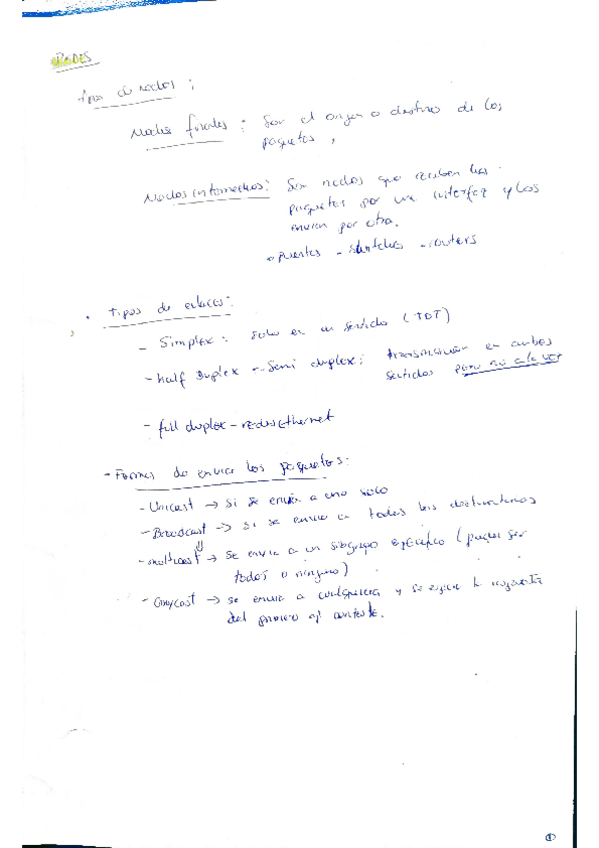 REDES
Tipos de nodos:
Nodos finales: Son el origen o destino de los
paquetes,
Nodos intermedios: Son nodos que reciben los
paquetes por una interfaz y los
envian por otra.
- Puentes - switches - routers
• Tipos de enlaces:
- Simplex: solo en un sentido (TDT)
- half Duplex - Semi duplex: transmision en ambos
sentidos pero no a la vez
- full duplex - redes Ethernet
- Formas de enviar los paquetes:
- Unicast → si se envia a uno solo
- Broadcast → si se envia a todos los destinatarios
- multicast → se envia a un subgrupo especifico (pueden ser
todos o ninguno)
- Anycast → se envia a cualquiera y se espera la respuesta
del primero q conteste.
1